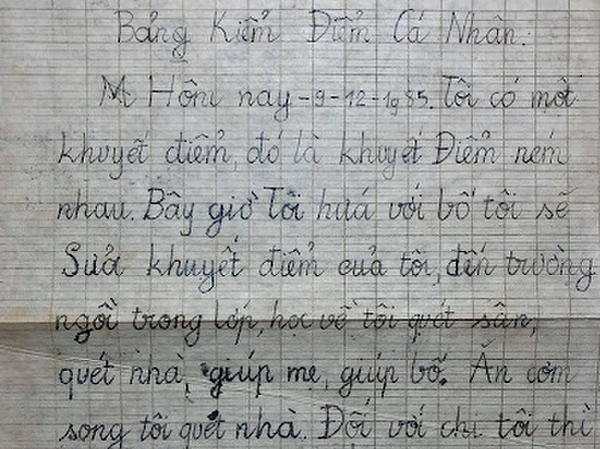 Bảng Kiểm Điểm Cá Nhân.
Hôm nay - 9 - 12 - 1985. Tôi có một
khuyết điểm, đó là khuyết Điểm ném
nhau. Bây giờ Tôi hứa với bố tôi sẽ
Sửa khuyết điểm của tôi, đến trường
ngồi trong lớp, học về tôi quét sân,
quét nhà, giúp mẹ, giúp bố. Ăn cơm
song tôi quét nhà. Đối với chị tôi thì